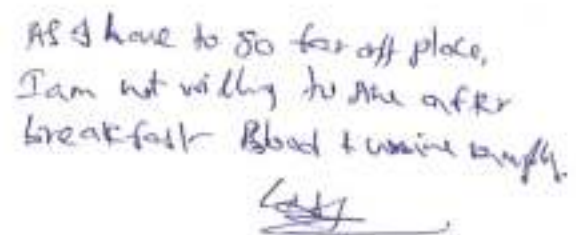 As I have to go far off place,
I am not willing to give after
breakfast Blood & urine sample.